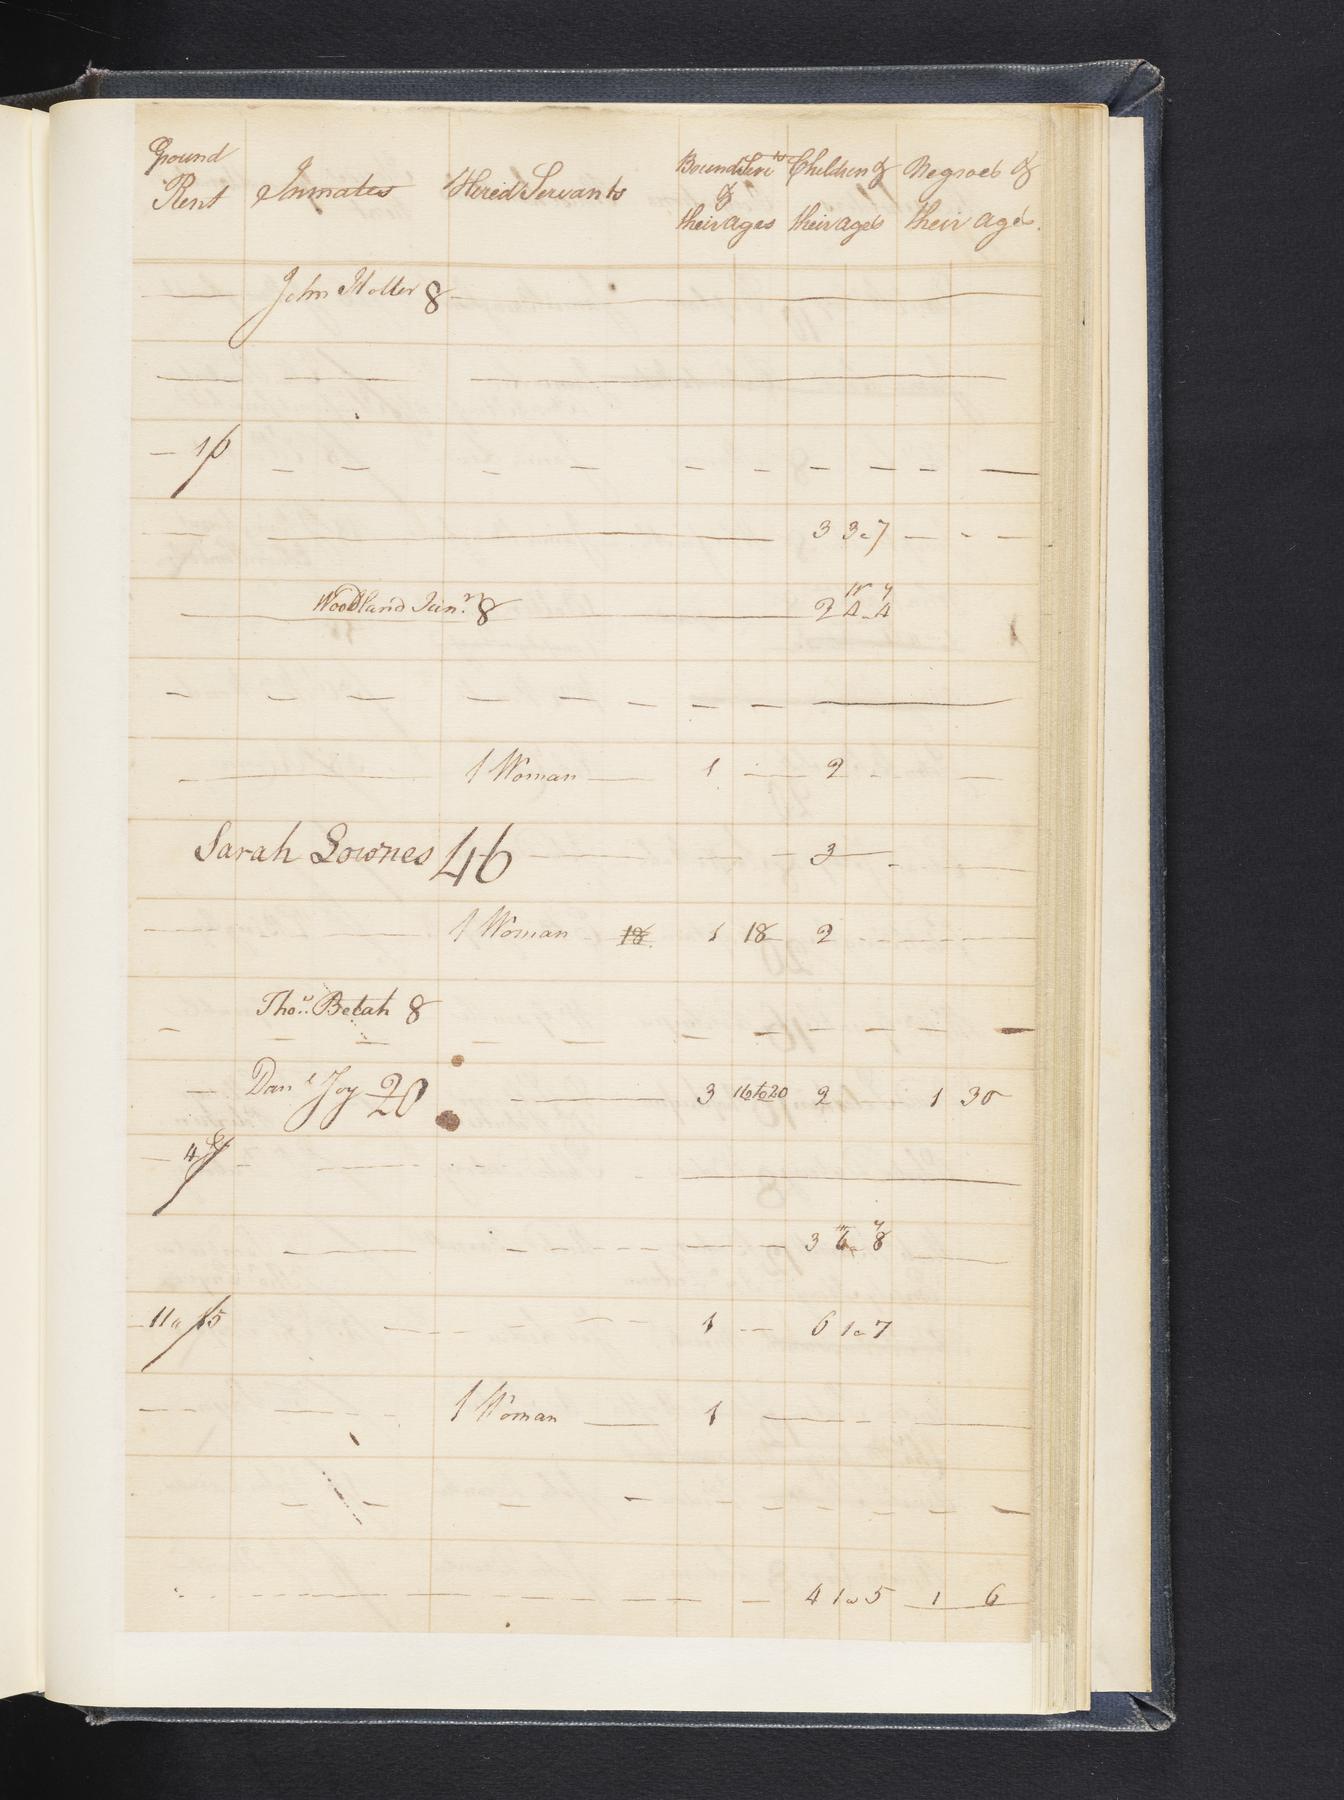 Ground Rent Inmates Hired Servants Bound Servts & their ages Children & their ages Negroes & their ages
John Holler 8
16
3 3 a 7
Woodland Junr. 8 2 4 4
1 Woman 1 2
Sarah Lownes 46 3
1 Woman 18 1 18 2
Thos. Betah 8
Danl Joy 20 3 16 to 20 2 1 30
4
3 6 8
11 a 15 1 6 1 a 7
1 Woman 1
4 1 a 5 1 6